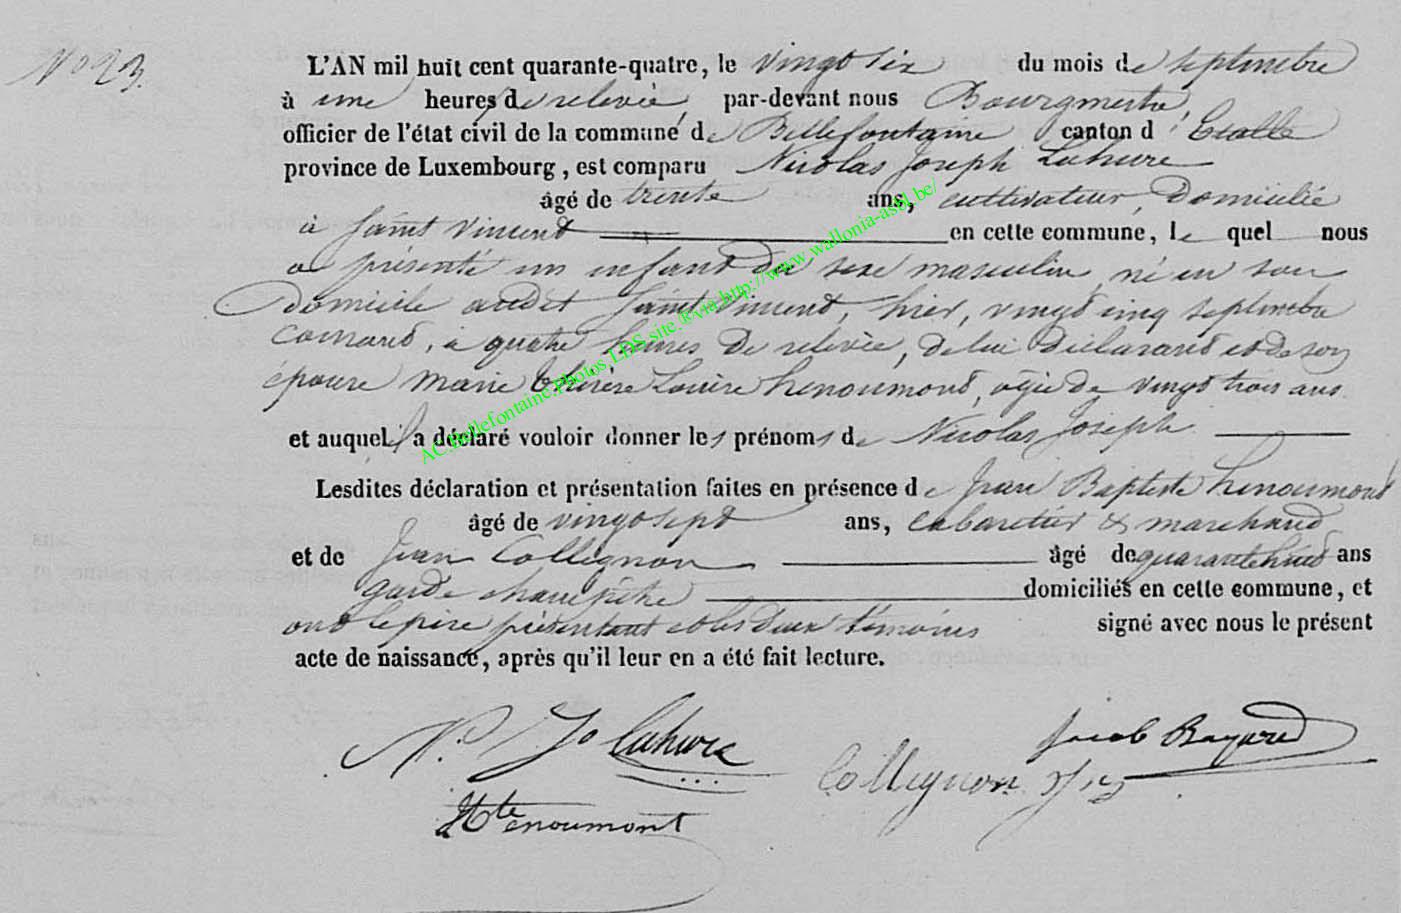 No 23.
L'AN mil huit cent quarante-quatre, le vingt six du mois de septembre
à une heures de relevée, par-devant nous Bourgmestre,
officier de l'état civil de la commune de Bellefontaine canton d'Etalle
province de Luxembourg, est comparu Nicolas Joseph Lahure
âgé de trente ans, cultivateur, domicilié
à Saint Vincent en cette commune, le quel nous
a présenté un enfant du sexe masculin, né en son
domicile audit Saint Vincent, hier, vingt cinq septembre
courant, à quatre heures de relevée, de lui déclarant et de son
épouse Marie Thérèse Louise Henoumont, agée de vingt trois ans.
et auquel il a déclaré vouloir donner les prénoms de Nicolas Joseph
Lesdites déclaration et présentation faites en présence de Jean Baptiste Henoumont
âgé de vingt sept ans, cabaretier & marchand
et de Jean Collignon âgé de quarante huit ans
garde champêtre domiciliés en cette commune, et
ont le père présentant et les deux témoins signé avec nous le présent
acte de naissance, après qu'il leur en a été fait lecture.
N. Jo Lahure
Jacob Bayard
Collignon
Henoumont
AC.Bellefontaine.Photos LDS site ® via http://www.wallonia-asbl.be/